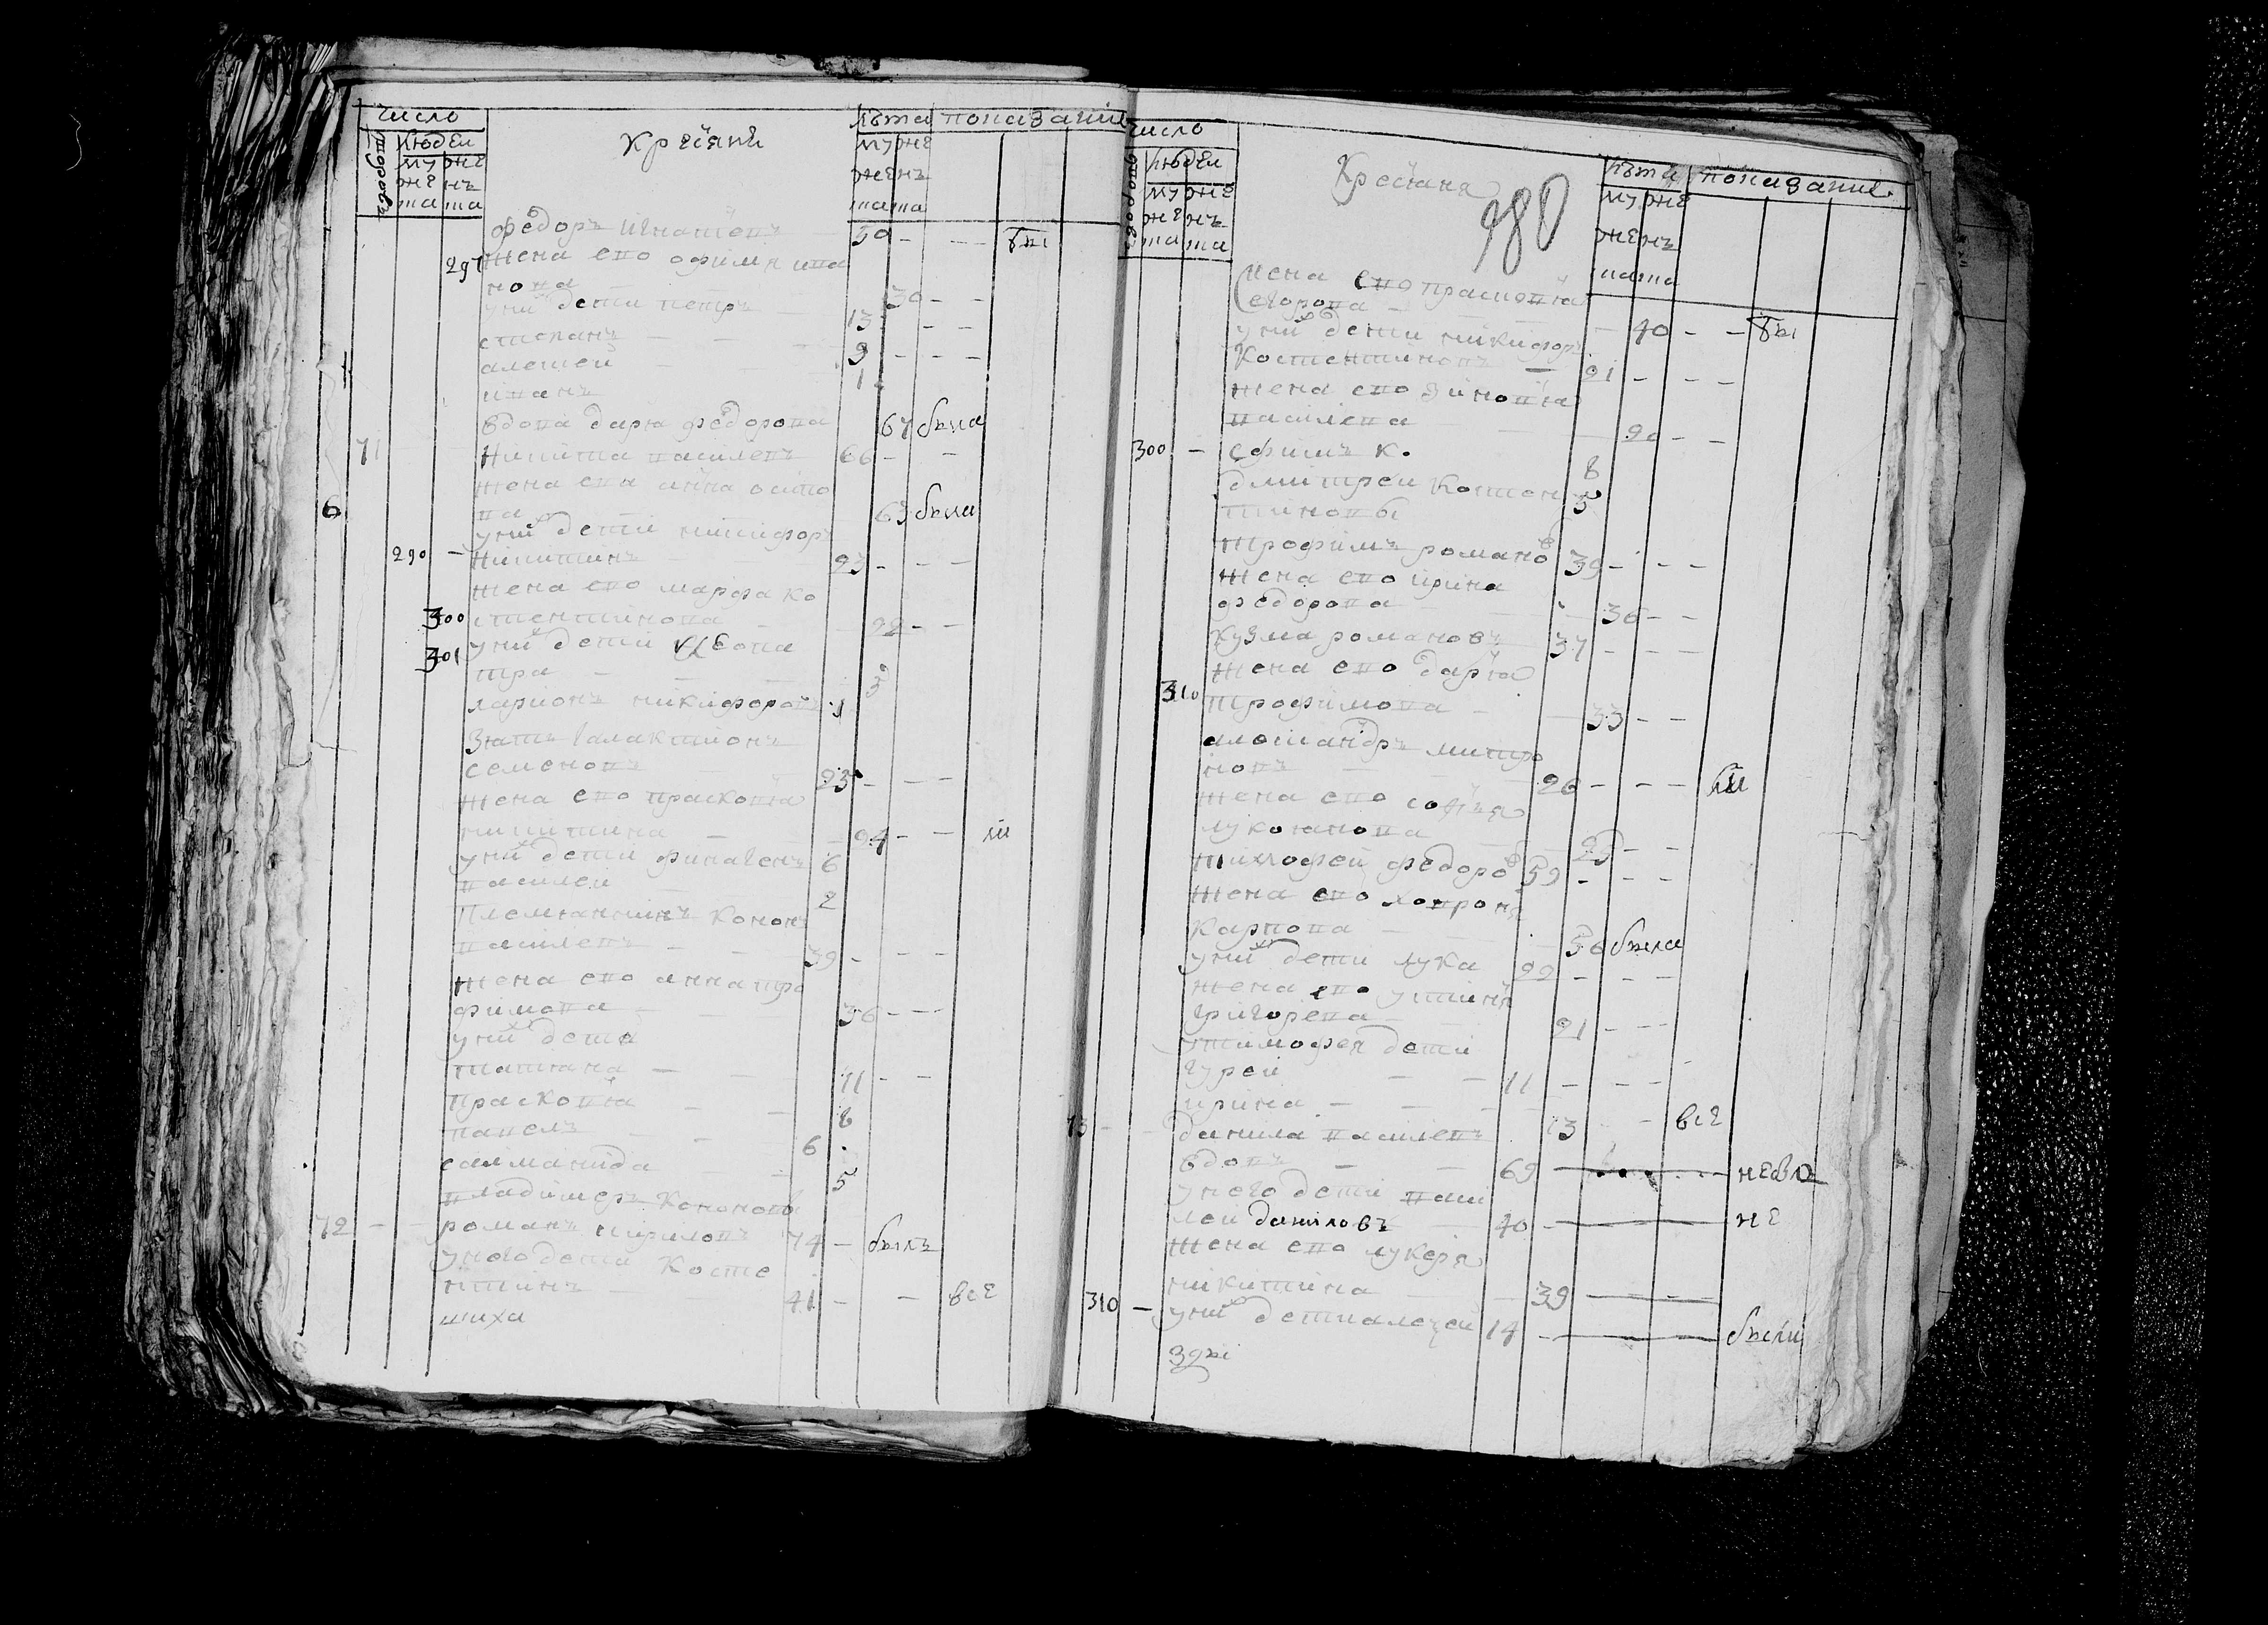 число
людеи
му же
же нъ
та та
Крестяне
лѣта показание
му же
же нъ
та та
федоръ игнатевъ 50 - - - бы
297 жена ево офимя ива
нова 30 - -
уних дети петръ 13 - -
степанъ 9 - - -
алексей 1
иванъ
вдова даря федорова 67 была
71 Никита василевъ 66 - -
жена ево анна осипо
ва 63 была
6
уних дети никифоръ
290 - Никитинъ 23 - - -
жена ево марфа ко
300 стентинова 22 - -
301 уних дети клеопа
тра 3
ларионъ никифоровъ 1
Зять галактионъ
семеновъ 23 - - -
жена ево прасковя
никитина 24 - -
уних дети финагенъ 6
василеи 2
Племянникъ кононъ
василевъ 39 - - -
жена ево анна тро
фимова 36 - - -
уних дети
татяна 11 - -
прасковя 8
павелъ 6
саламанида 5
владимеръ кононовъ
72 - - романъ кириловъ 74 - былъ
унего дети косте
нтинъ 41 - - все
тиха
число
людеи
му же
же нъ
та та
Крестяня
980
лѣта показание
му же
же нъ
та та
жена ево прасковя
егорова - 40 - - бы
уних дети никифоръ
Костентиновъ 21 - - -
жена ево зиновя
василева 20 - -
300 - ефимъ к. 8
дмитреи костен 5
тиновы
трофимъ романов 39 - - -
жена ево ирина
федорова 36 - -
кузма романовъ 37 - - -
жена ево даря
310 трофимова 33 - -
александръ митро
новъ 26 - - -
жена ево софья
лукоянова 23 - -
тимофей федоров 59 - - -
жена ево хопроня
Карпова 56 была
уних дети лука 22 - - -
жена ево устиня
григорева 21 - - -
утимофея дети
гурей 11 - - -
ирина 13 - - все
73 - данила василевъ
вдовъ 69 - небыл
унего дети васи
леи даниловъ 40 - не
жена ево лукеря
никитина 39 -
310 - уних дети алексеи 14 - были